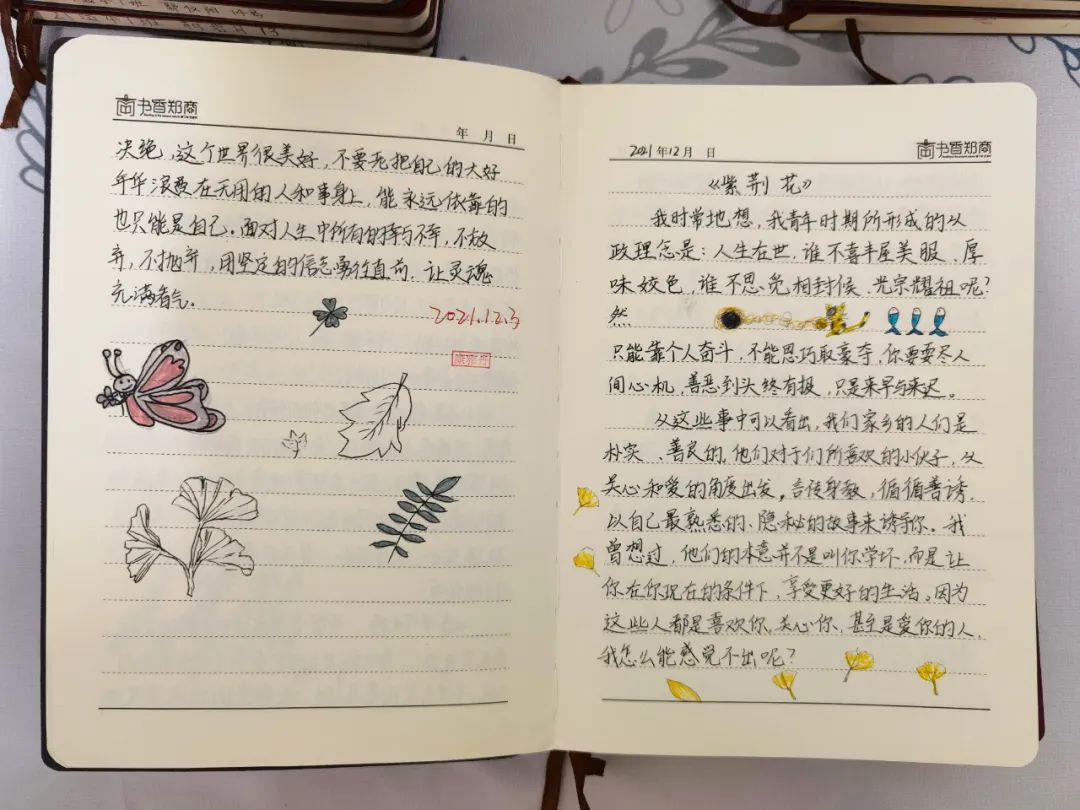 书香郑商
年 月 日
决绝,这个世界很美好,不要无把自己的大好
年华浪费在无用的人和事身上,能永远依靠的
也只能是自己。面对人生中所有的幸与不幸,不放
弃,不抛弃,用坚定的信念勇往直前,让灵魂
充满香气。
2021.12.3
书香郑商
2021年12月 日
《紫荆花》
我时常地想,我青年时期所形成的从
政理念是:人生在世,谁不喜丰屋美服、厚
味姣色,谁不思觅相封候、光宗耀祖呢?
然
只能靠个人奋斗,不能思巧取豪夺,你要耍尽人
间心机,善恶到头终有报,只是来早与来迟。
从这些事中可以看出,我们家乡的人们是
朴实、善良的,他们对于们所喜欢的小伙子,从
关心和爱的角度出发。言传身教,循循善诱,
以自己最熟悉的、隐秘的故事来诱导你。我
曾想过,他们的本意并不是叫你学坏,而是让
你在你现在的条件下,享受更好的生活。因为
这些人都是喜欢你,关心你,甚至是爱你的人,
我怎么能感觉不出呢?